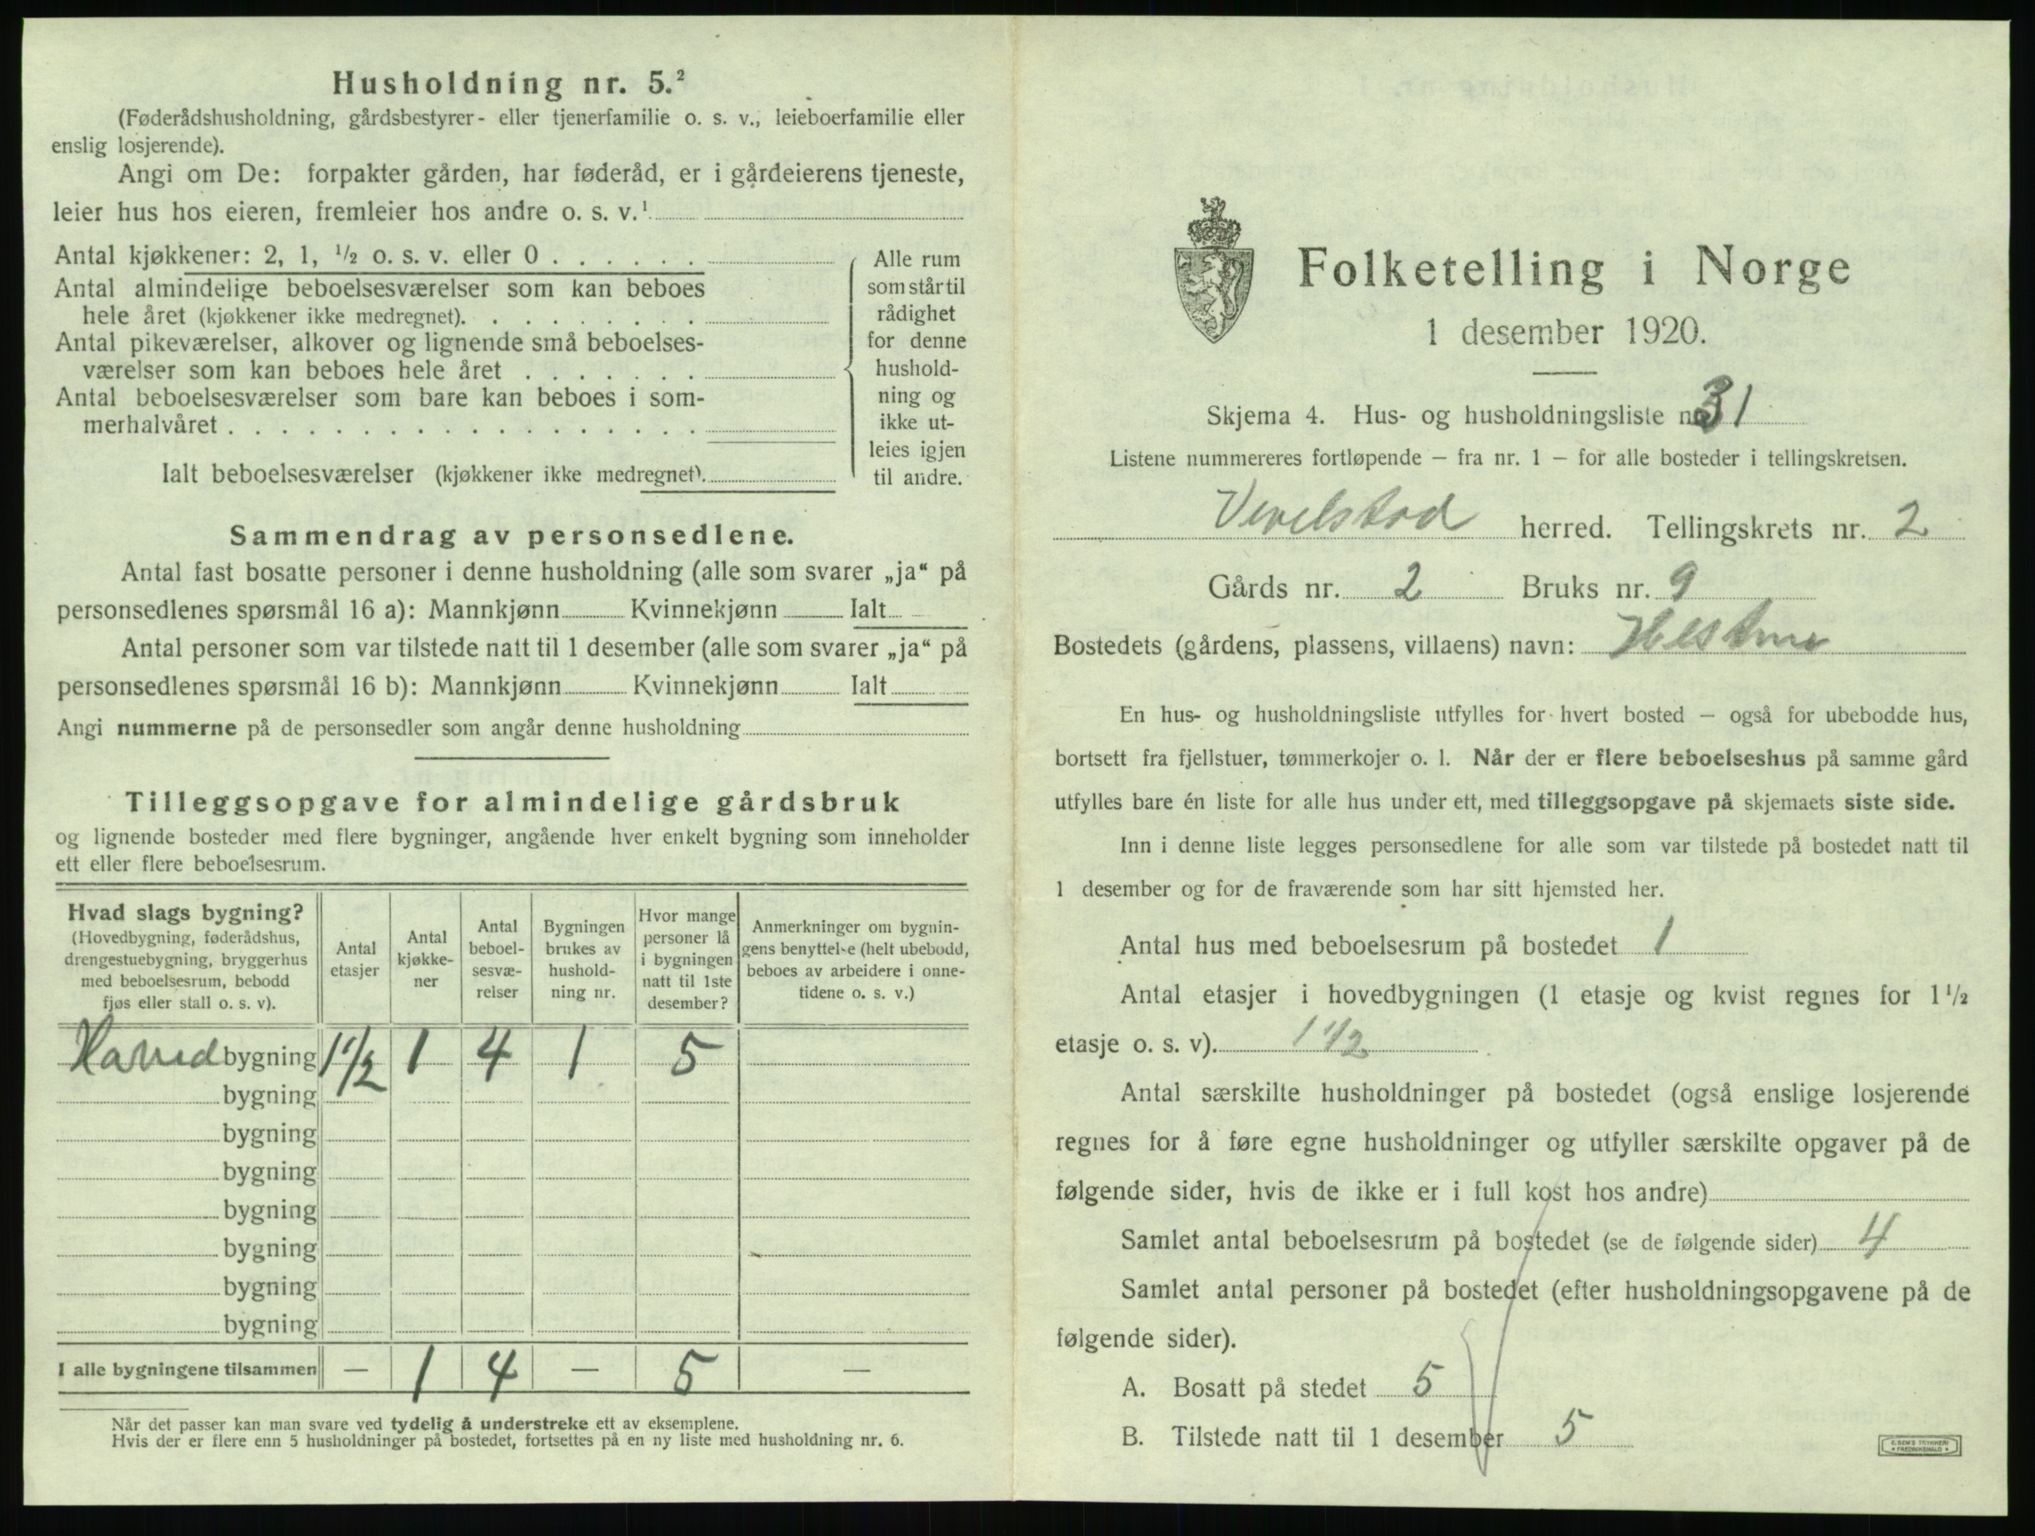 Husholdning nr. 5.²
(Føderådshusholdning, gårdsbestyrer- eller tjenerfamilie o. s. v., leieboerfamilie eller
enslig losjerende).
Angi om De: forpakter gården, har føderåd, er i gårdeierens tjeneste,
leier hus hos eieren, fremleier hos andre o. s. v.¹
Antal kjøkkener: 2, 1, ½ o. s. v. eller 0 . . . . . .
Antal almindelige beboelsesværelser som kan beboes
hele året (kjøkkener ikke medregnet). . . . . . . . .
Antal pikeværelser, alkover og lignende små beboelses-
værelser som kan beboes hele året . . . . . . .
Antal beboelsesværelser som bare kan beboes i som-
merhalvåret . . . . . . . . . . . . . . . . . .
Ialt beboelsesværelser (kjøkkener ikke medregnet).
Alle rum
som står til
rådighet
for denne
hushold-
ning og
ikke ut-
leies igjen
til andre.
Sammendrag av personsedlene.
Antal fast bosatte personer i denne husholdning (alle som svarer „ja“ på
personsedlenes spørsmål 16 a): Mannkjønn Kvinnekjønn Ialt
Antal personer som var tilstede natt til 1 desember (alle som svarer „ja“ på
personsedlenes spørsmål 16 b): Mannkjønn Kvinnekjønn Ialt
Angi nummerne på de personsedler som angår denne husholdning
Tilleggsopgave for almindelige gårdsbruk
og lignende bosteder med flere bygninger, angående hver enkelt bygning som inneholder
ett eller flere beboelsesrum.
Hvad slags bygning?
(Hovedbygning, føderådshus,
drengestuebygning, bryggerhus
med beboelsesrum, bebodd
fjøs eller stall o. s. v).
Antal
etasjer
Antal
kjøkke-
ner
Antal
beboel-
sesvæ-
relser
Bygningen
brukes av
hushold-
ning nr.
Hvor mange
personer lå
i bygningen
natt til 1ste
desember?
Anmerkninger om bygnin-
gens benyttelse (helt ubebodd,
beboes av arbeidere i onne-
tidene o. s. v.)
Hoved bygning 1½ 1 4 1 5
bygning
bygning
bygning
bygning
bygning
bygning
bygning
I alle bygningene tilsammen — 1 4 — 5 —
Når det passer kan man svare ved tydelig å understreke ett av eksemplene.
Hvis der er flere enn 5 husholdninger på bostedet, fortsettes på en ny liste med husholdning nr. 6.
Folketelling i Norge
1 desember 1920.
Skjema 4. Hus- og husholdningsliste nr. 31
Listene nummereres fortløpende – fra nr. 1 – for alle bosteder i tellingskretsen.
Vevelstad herred. Tellingskrets nr. 2
Gårds nr. 2 Bruks nr. 9
Bostedets (gårdens, plassens, villaens) navn:
En hus- og husholdningsliste utfylles for hvert bosted – også for ubebodde hus,
bortsett fra fjellstuer, tømmerkojer o. l. Når der er flere beboelseshus på samme gård
utfylles bare én liste for alle hus under ett, med tilleggsopgave på skjemaets siste side.
Inn i denne liste legges personsedlene for alle som var tilstede på bostedet natt til
1 desember og for de fraværende som har sitt hjemsted her.
Antal hus med beboelsesrum på bostedet 1
Antal etasjer i hovedbygningen (1 etasje og kvist regnes for 1½
etasje o. s. v). 1½
Antal særskilte husholdninger på bostedet (også enslige losjerende
regnes for å føre egne husholdninger og utfyller særskilte opgaver på de
følgende sider, hvis de ikke er i full kost hos andre)
Samlet antal beboelsesrum på bostedet (se de følgende sider) 4
Samlet antal personer på bostedet (efter husholdningsopgavene på de
følgende sider).
A. Bosatt på stedet 5
B. Tilstede natt til 1 desember 5
E. SEM'S TRYKKERI
FREDRIKSHALD